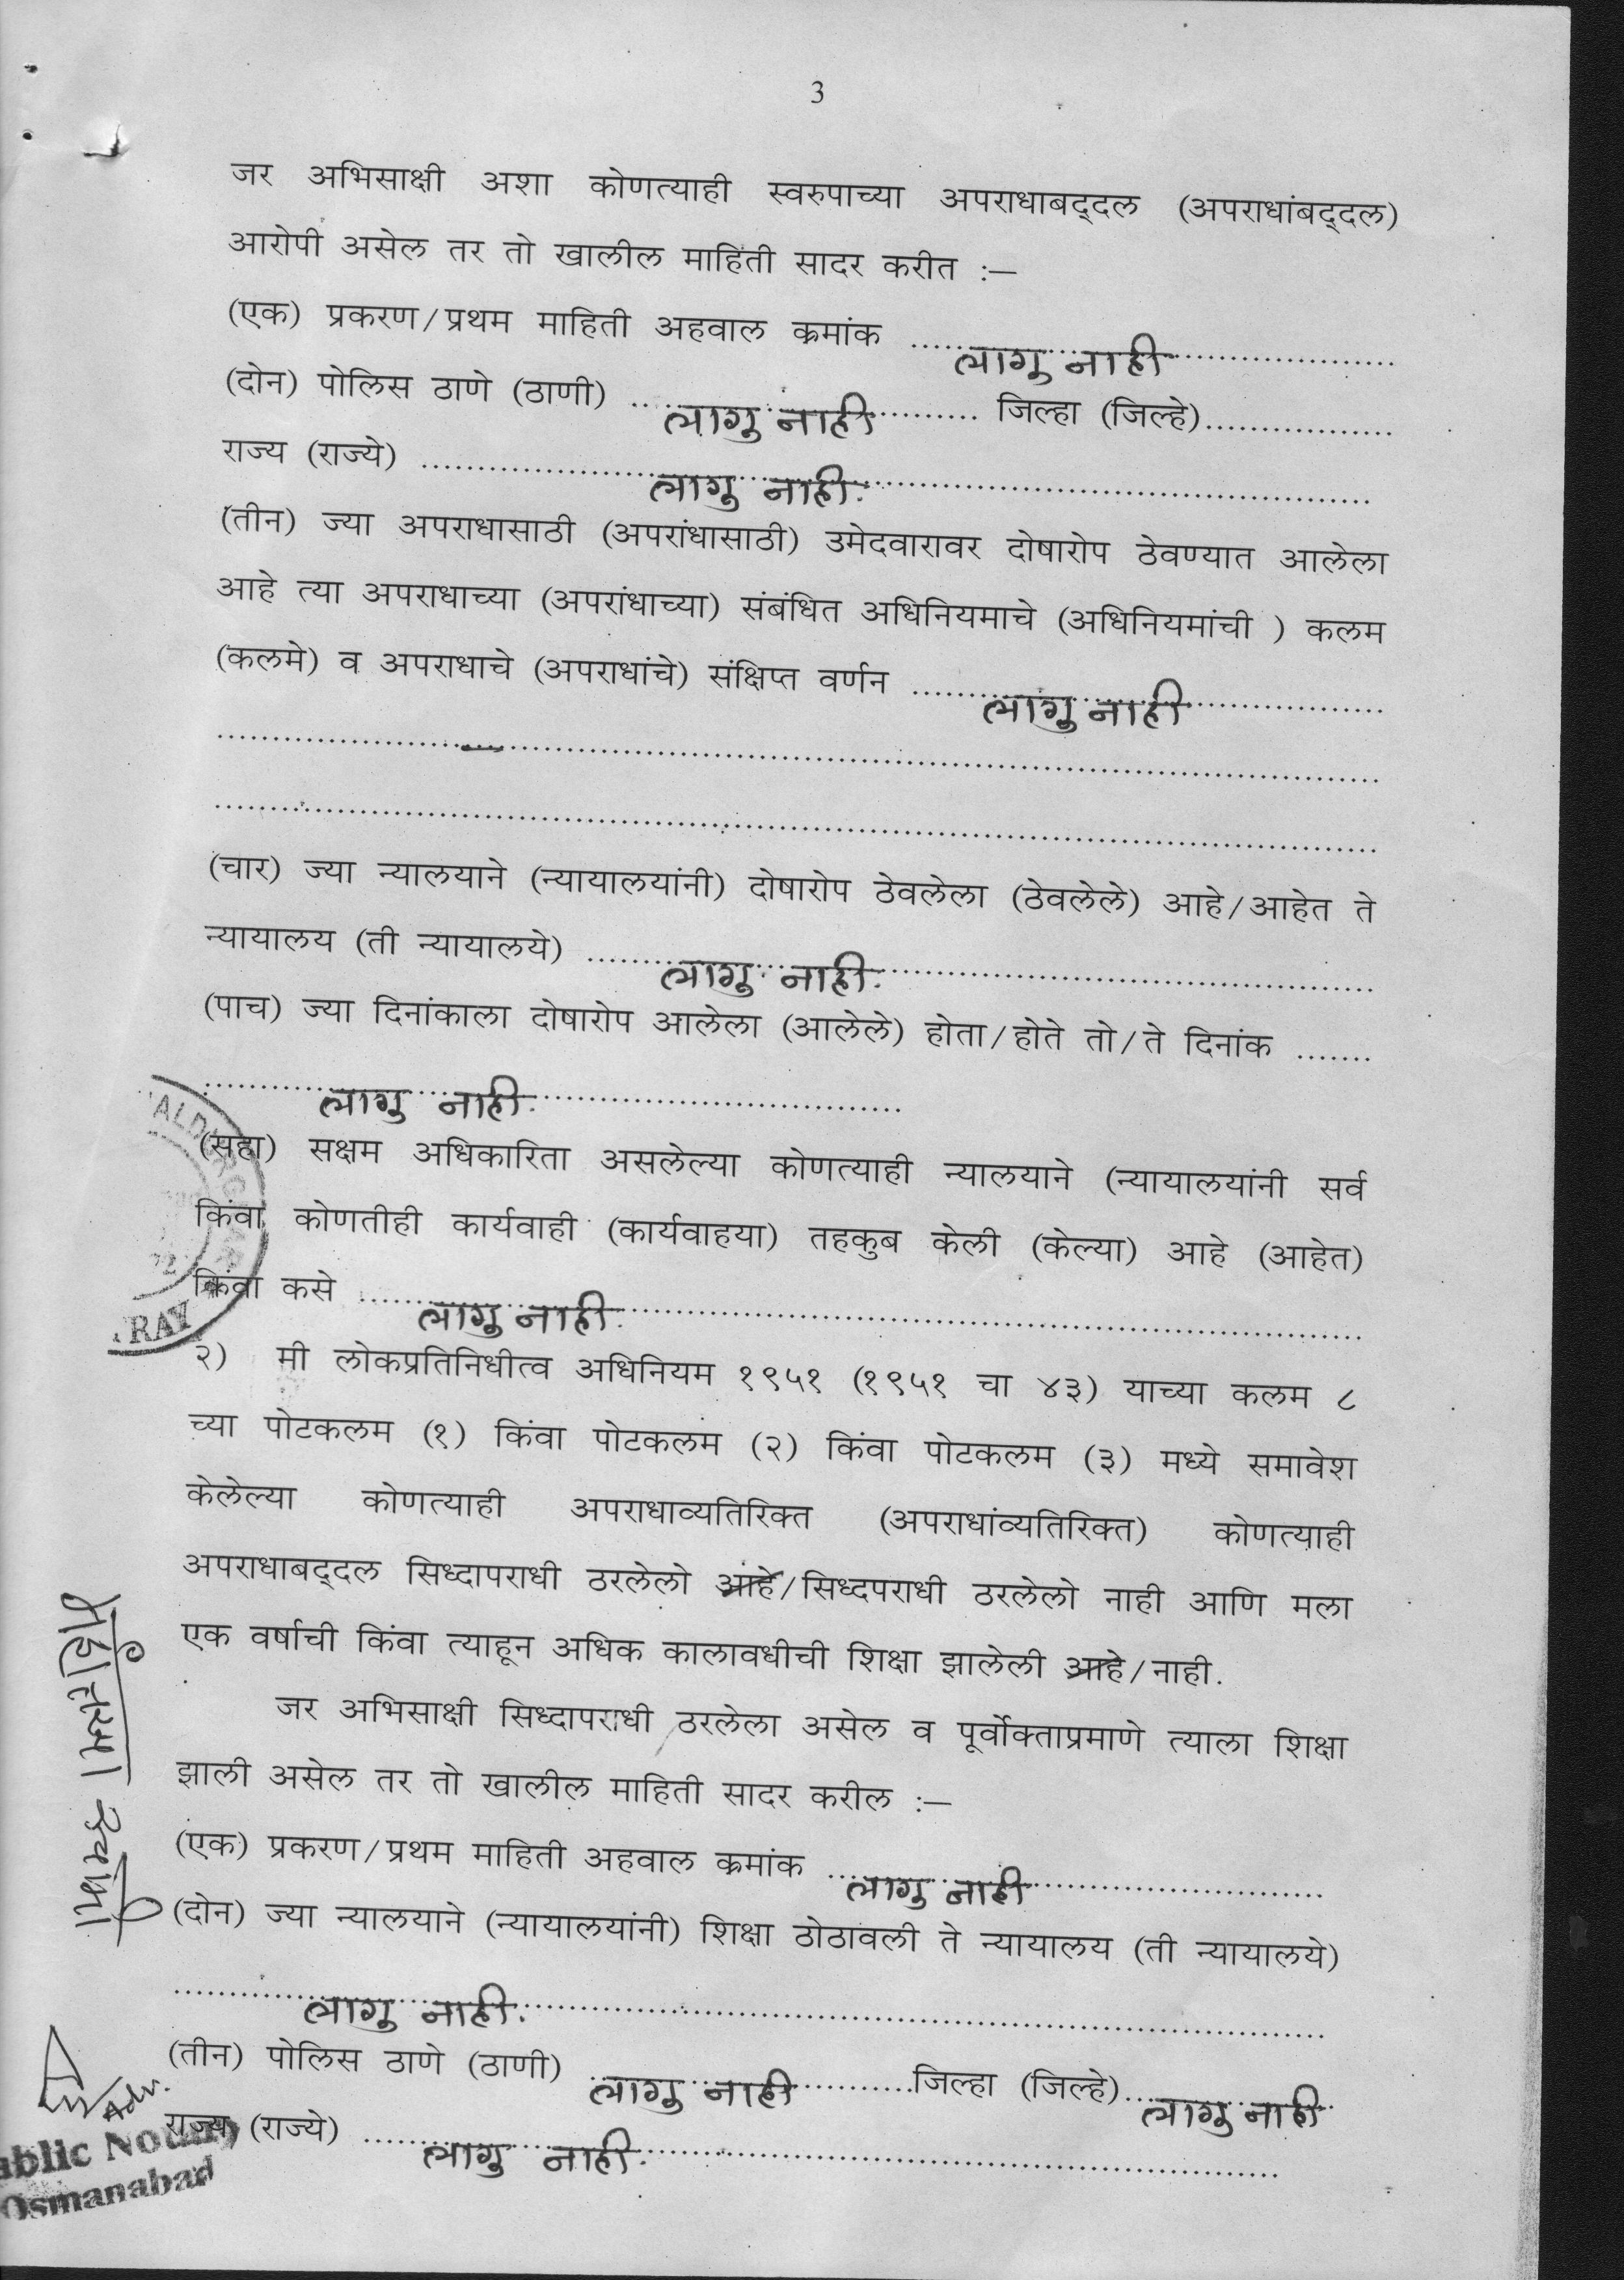 3
जर अभिसाक्षी अशा कोणत्याही स्वरुपाच्या अपराधाबद्दल (अपराधांबद्दल)
आरोपी असेल तर तो खालील माहिती सादर करीत :—
(एक) प्रकरण/प्रथम माहिती अहवाल क्रमांक ........ लागु नाही ........
(दोन) पोलिस ठाणे (ठाणी) ........ लागु नाही ........ जिल्हा (जिल्हे)........
राज्य (राज्ये) ........ लागु नाही. ........
(तीन) ज्या अपराधासाठी (अपरांधासाठी) उमेदवारावर दोषारोप ठेवण्यात आलेला
आहे त्या अपराधाच्या (अपरांधाच्या) संबंधित अधिनियमाचे (अधिनियमांची ) कलम
(कलमे) व अपराधाचे (अपराधांचे) संक्षिप्त वर्णन ........ लागु नाही ........
(चार) ज्या न्यालयाने (न्यायालयांनी) दोषारोप ठेवलेला (ठेवलेले) आहे/आहेत ते
न्यायालय (ती न्यायालये) ........ लागु नाही. ........
(पाच) ज्या दिनांकाला दोषारोप आलेला (आलेले) होता/होते तो/ते दिनांक .......
........ लागु नाही. ........
(सहा) सक्षम अधिकारिता असलेल्या कोणत्याही न्यालयाने (न्यायालयांनी सर्व
किंवा कोणतीही कार्यवाही (कार्यवाहया) तहकुब केली (केल्या) आहे (आहेत)
किंवा कसे ........ लागु नाही. ........
२) मी लोकप्रतिनिधीत्व अधिनियम १९५१ (१९५१ चा ४३) याच्या कलम ८
च्या पोटकलम (१) किंवा पोटकलम (२) किंवा पोटकलम (३) मध्ये समावेश
केलेल्या कोणत्याही अपराधाव्यतिरिक्त (अपराधांव्यतिरिक्त) कोणत्याही
अपराधाबद्दल सिध्दापराधी ठरलेलो आहे/सिध्दपराधी ठरलेलो नाही आणि मला
एक वर्षाची किंवा त्याहून अधिक कालावधीची शिक्षा झालेली आहे/नाही.
जर अभिसाक्षी सिध्दापराधी ठरलेला असेल व पूर्वोक्ताप्रमाणे त्याला शिक्षा
झाली असेल तर तो खालील माहिती सादर करील :—
(एक) प्रकरण/प्रथम माहिती अहवाल क्रमांक ........ लागु नाही ........
(दोन) ज्या न्यालयाने (न्यायालयांनी) शिक्षा ठोठावली ते न्यायालय (ती न्यायालये)
........ लागु नाही. ........
(तीन) पोलिस ठाणे (ठाणी) ........ लागु नाही ........जिल्हा (जिल्हे)........ लागु नाही
राज्य (राज्ये) ........ लागु नाही. ........
Osmanabad